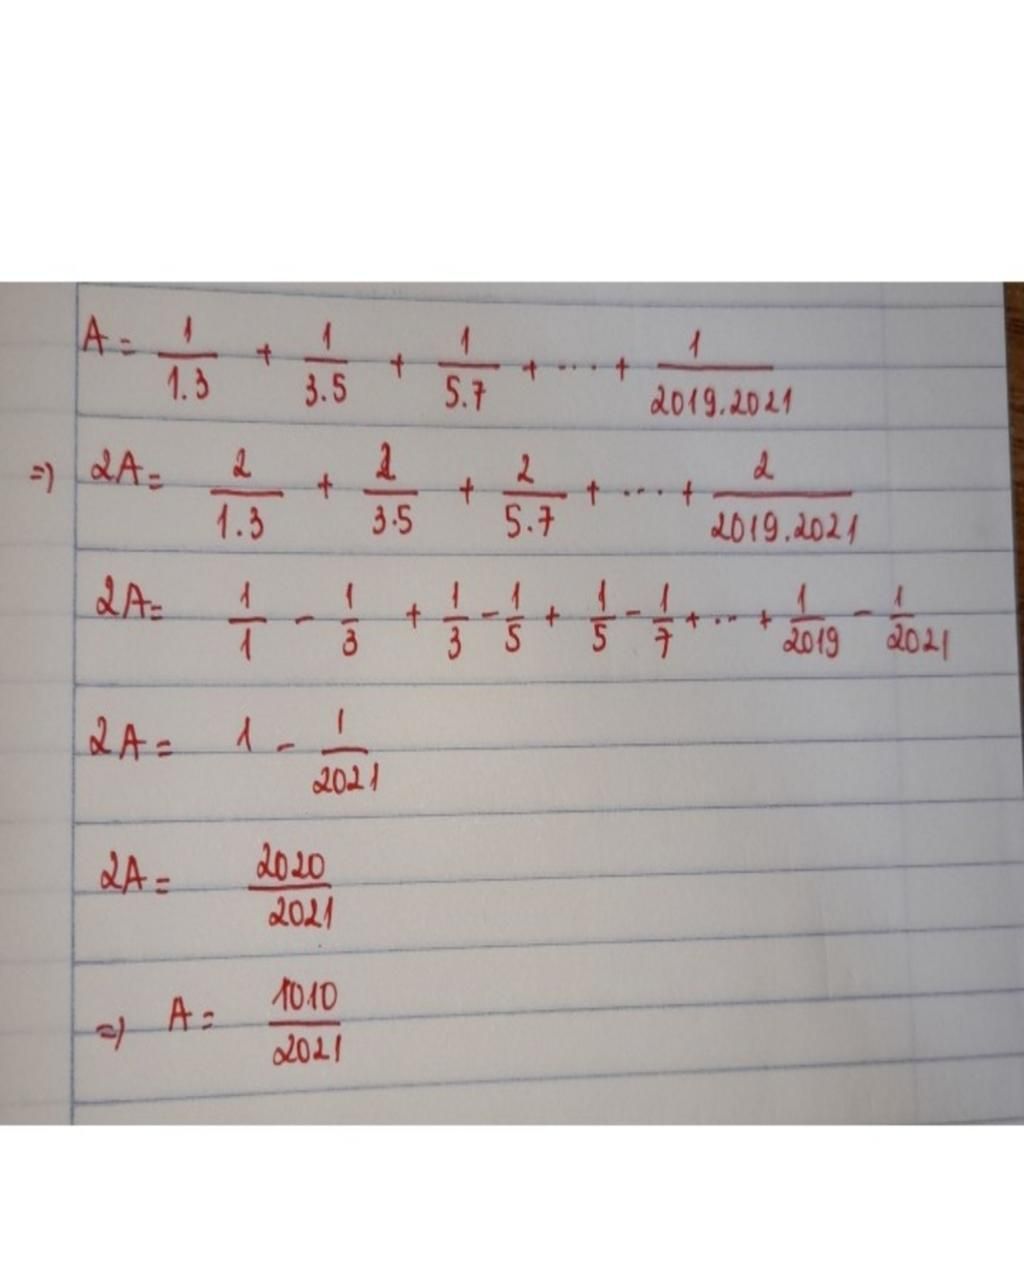 A = 1/1.3 + 1/3.5 + 1/5.7 + ... + 1/2019.2021
=) 2A = 2/1.3 + 2/3.5 + 2/5.7 + ... + 2/2019.2021
2A = 1/1 - 1/3 + 1/3 - 1/5 + 1/5 - 1/7 + ... + 1/2019 - 1/2021
2A = 1 - 1/2021
2A = 2020/2021
=) A = 1010/2021